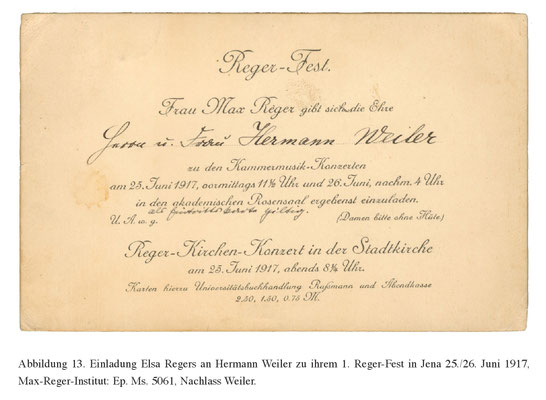 Reger-Fest.
Frau Max Reger gibt sich die Ehre
Herrn u. Frau Hermann Weiler
zu den Kammermusik-Konzerten
am 25. Juni 1917, vormittags 11½ Uhr und 26. Juni, nachm. 4 Uhr
in den akademischen Rosensaal ergebenst einzuladen.
als Eintrittskarte gültig.
U. A. w. g. (Damen bitte ohne Hüte)
Reger-Kirchen-Konzert in der Stadtkirche
am 25. Juni 1917, abends 8¼ Uhr.
Karten hierzu Universitätsbuchhandlung Raßmann und Abendkasse
2.50, 1.50, 0.75 M.
Abbildung 13. Einladung Elsa Regers an Hermann Weiler zu ihrem 1. Reger-Fest in Jena 25./26. Juni 1917,
Max-Reger-Institut: Ep. Ms. 5061, Nachlass Weiler.